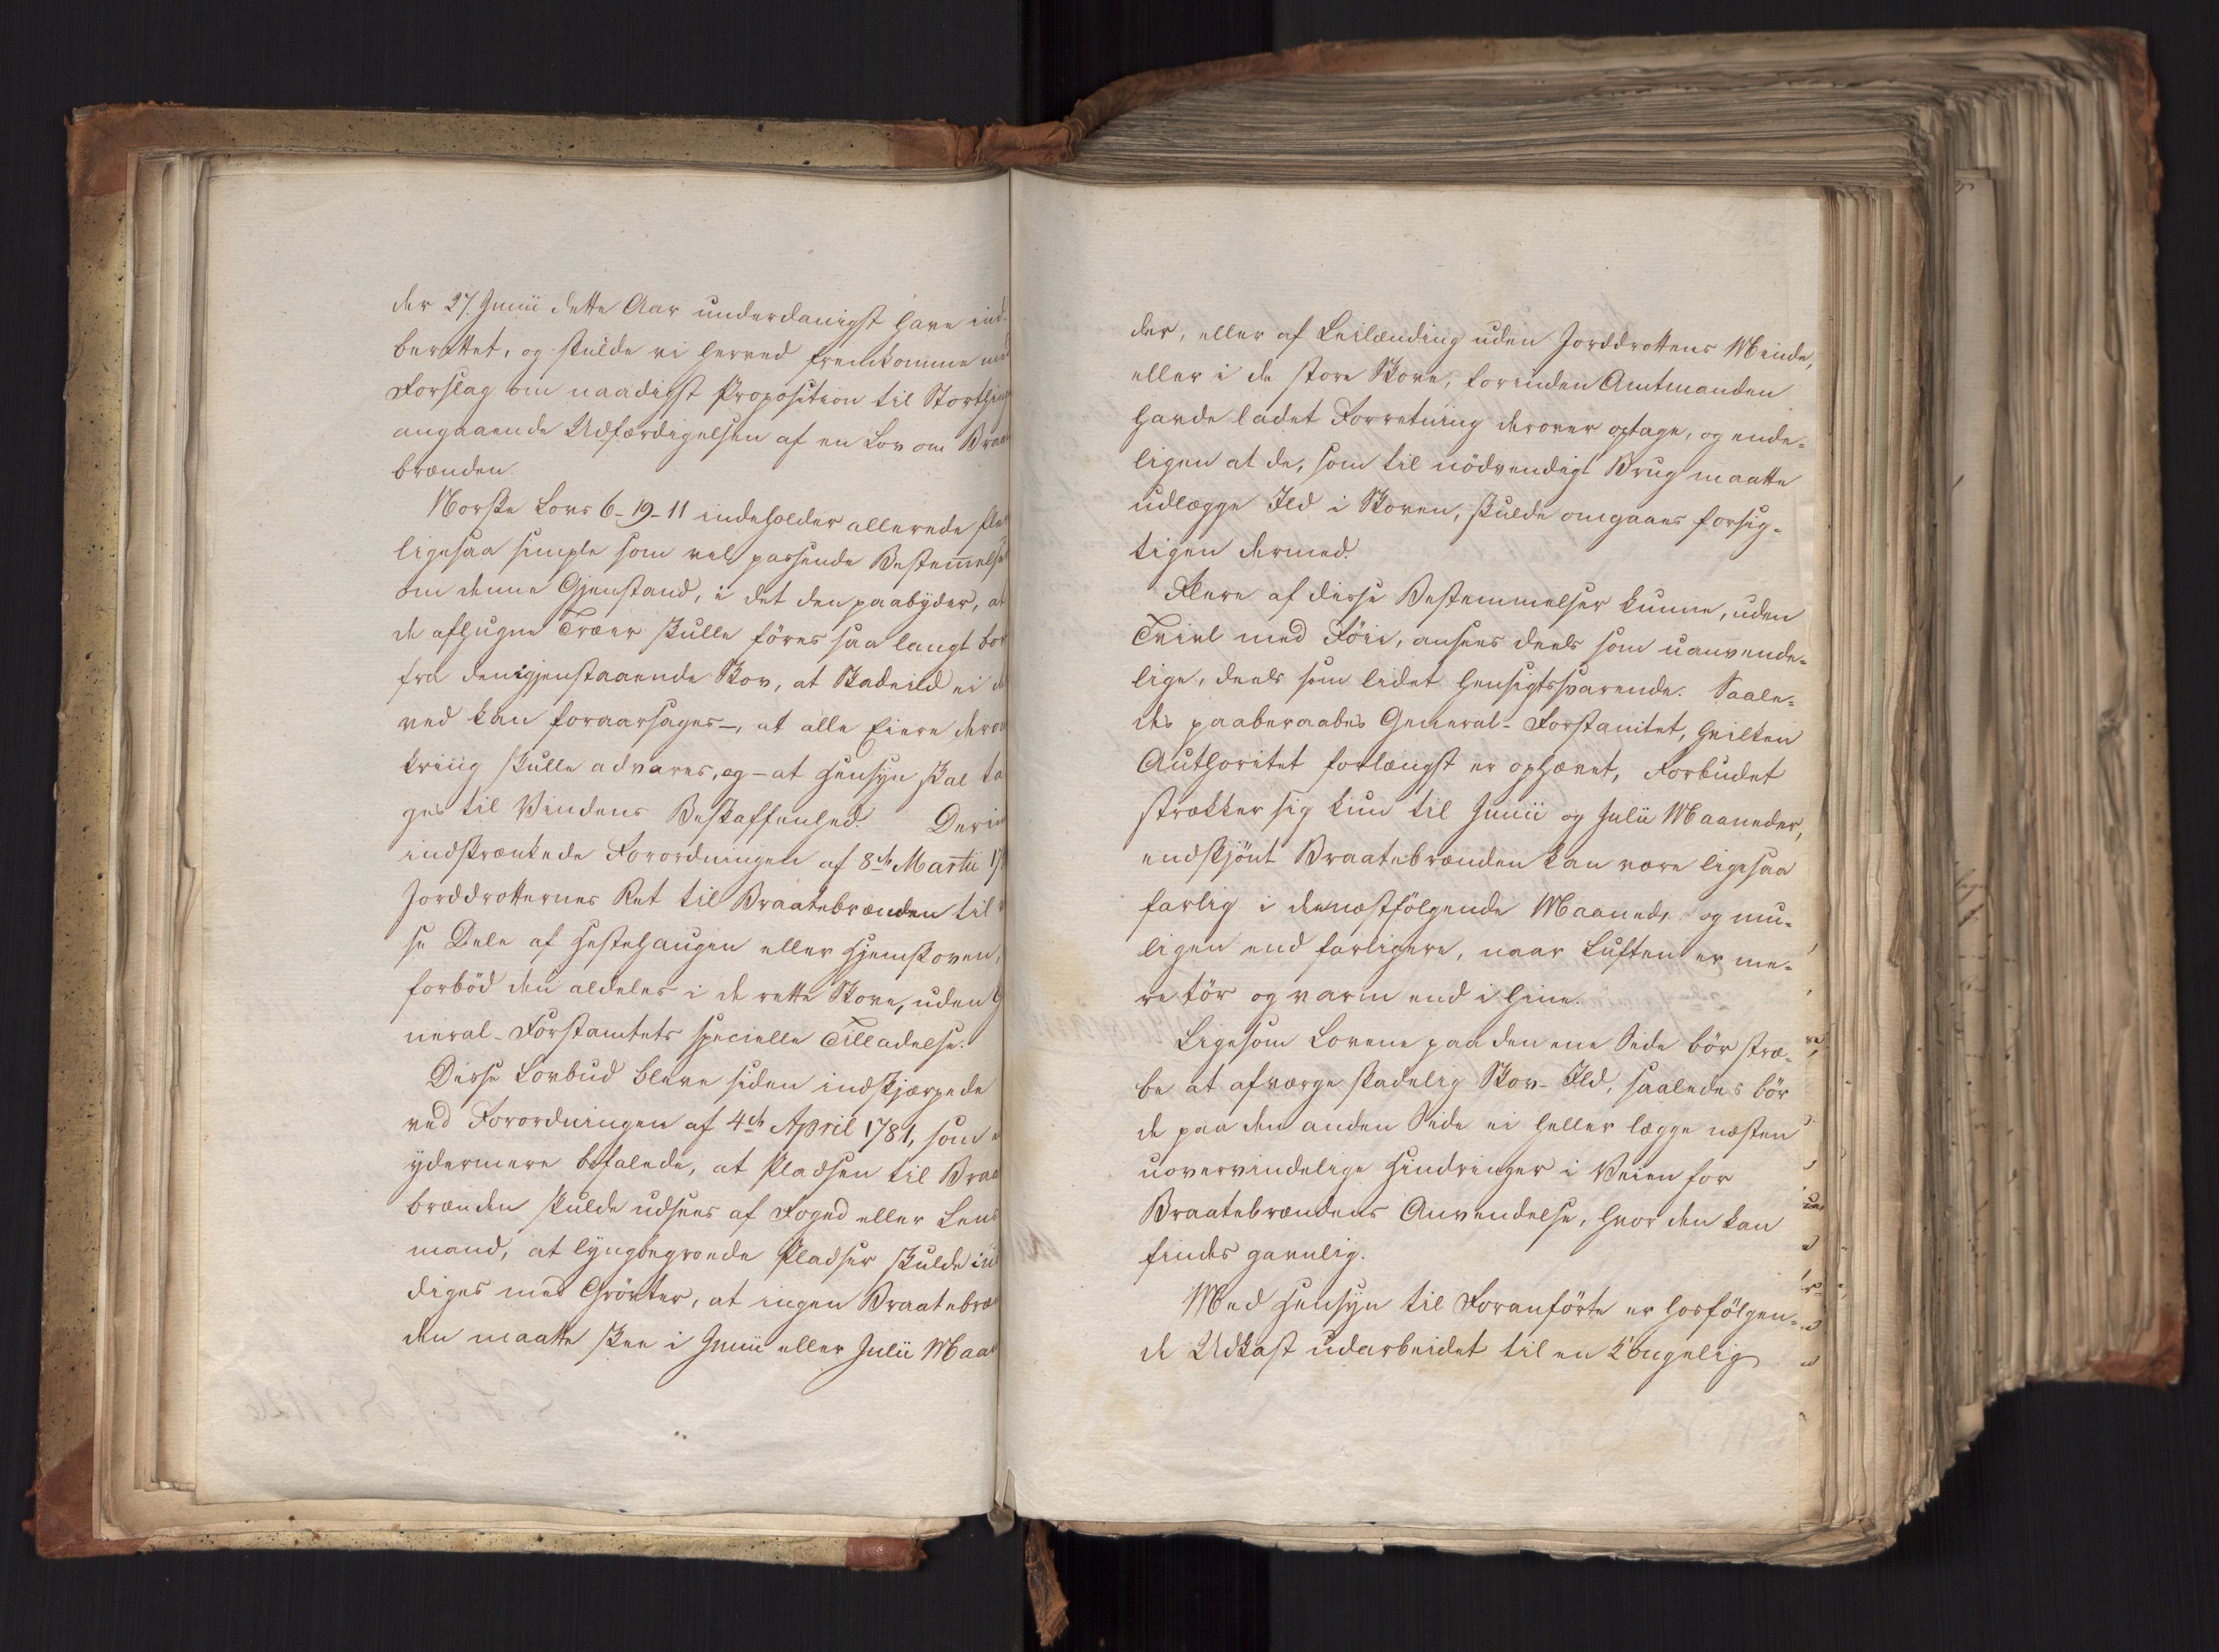 der 27. Junii dette Aar underdanigst have ind-
berettet, og skulde vi herved fremkomme med
Forslag om naadigst Proposition til Storthing
angaaende Udfærdigelsen af en Lov om Braa
brænden.
Norske Lovs 6-19-11 indeholder allerede fle
ligesaa simple som vel passende Bestem̄elser
om denne Gjenstand, i det den paabyder, at
de afhugne Træer skulle föres saa langt bor
fra den igjenstaaende Skov, at Skadeild ei d
ved kan foraarsages-, at alle Eiere derom
kring skulle advares, og - at Hensyn skal ta
ges til Vindens Beskaffenhed. Derim
indskrænkede Forordningen af 8de Martii 17
Jorddrotternes Ret til Braatebrænden til v
se Dele af Hestehaugen eller Hjemskoven,
forböd den aldeles i de rette Skove, uden G
neral-Forstamtets specielle Tilladelse.
Disse Lovbud bleve siden indskjærpede
ved Forordningen af 4de April 1781, som
ydermere befalede, at Pladsen til Braa
brænden skulde udsees af Foged eller Lens
mand, at lyngbegroede Pladser skulde in
diges med Gröfter, at ingen Braatebræ
den maatte skee i Junii eller Julii Maan
der, eller af Leilænding uden Jorddrottens Minde,
eller i de store Skove, forinden Amtmanden
havde ladet Forretning derover optage, og ende-
ligen at de, som til nödvendigt Brug maatte
udlægge Ild i Skoven, skulde omgaaes forsig-
tigen dermed.
Flere af disse Bestemmelser kunne, uden
Tvivl med Föie, ansees deels som uanvende-
lige, deels som lidet hensigtssvarende. Saale-
des paaberaabes General-Forstamtet, hvilken
Authoritet forlængst er ophævet, Forbudet
strækker sig kun til Junii og Julii Maaneder,
endskjönt Braatebrænden kan være ligesaa
farlig i de næstfölgende Maaneder og mu-
ligen end farligere, naar Luften er me-
re tör og varm end i hine.
Ligesom Lovene paa den ene Side bör stræ-
be at afværge skadelig Skov-Ild, saaledes bör
de paa den anden Side ei heller lægge næsten
uovervindelige Hindringer i Veien for
Braatebrændens Anvendelse, hvor den kan
findes gavnlig.
Med Hensyn til Foranförte er hosfölgen-
de Udkast udarbeidet til en Kongelig